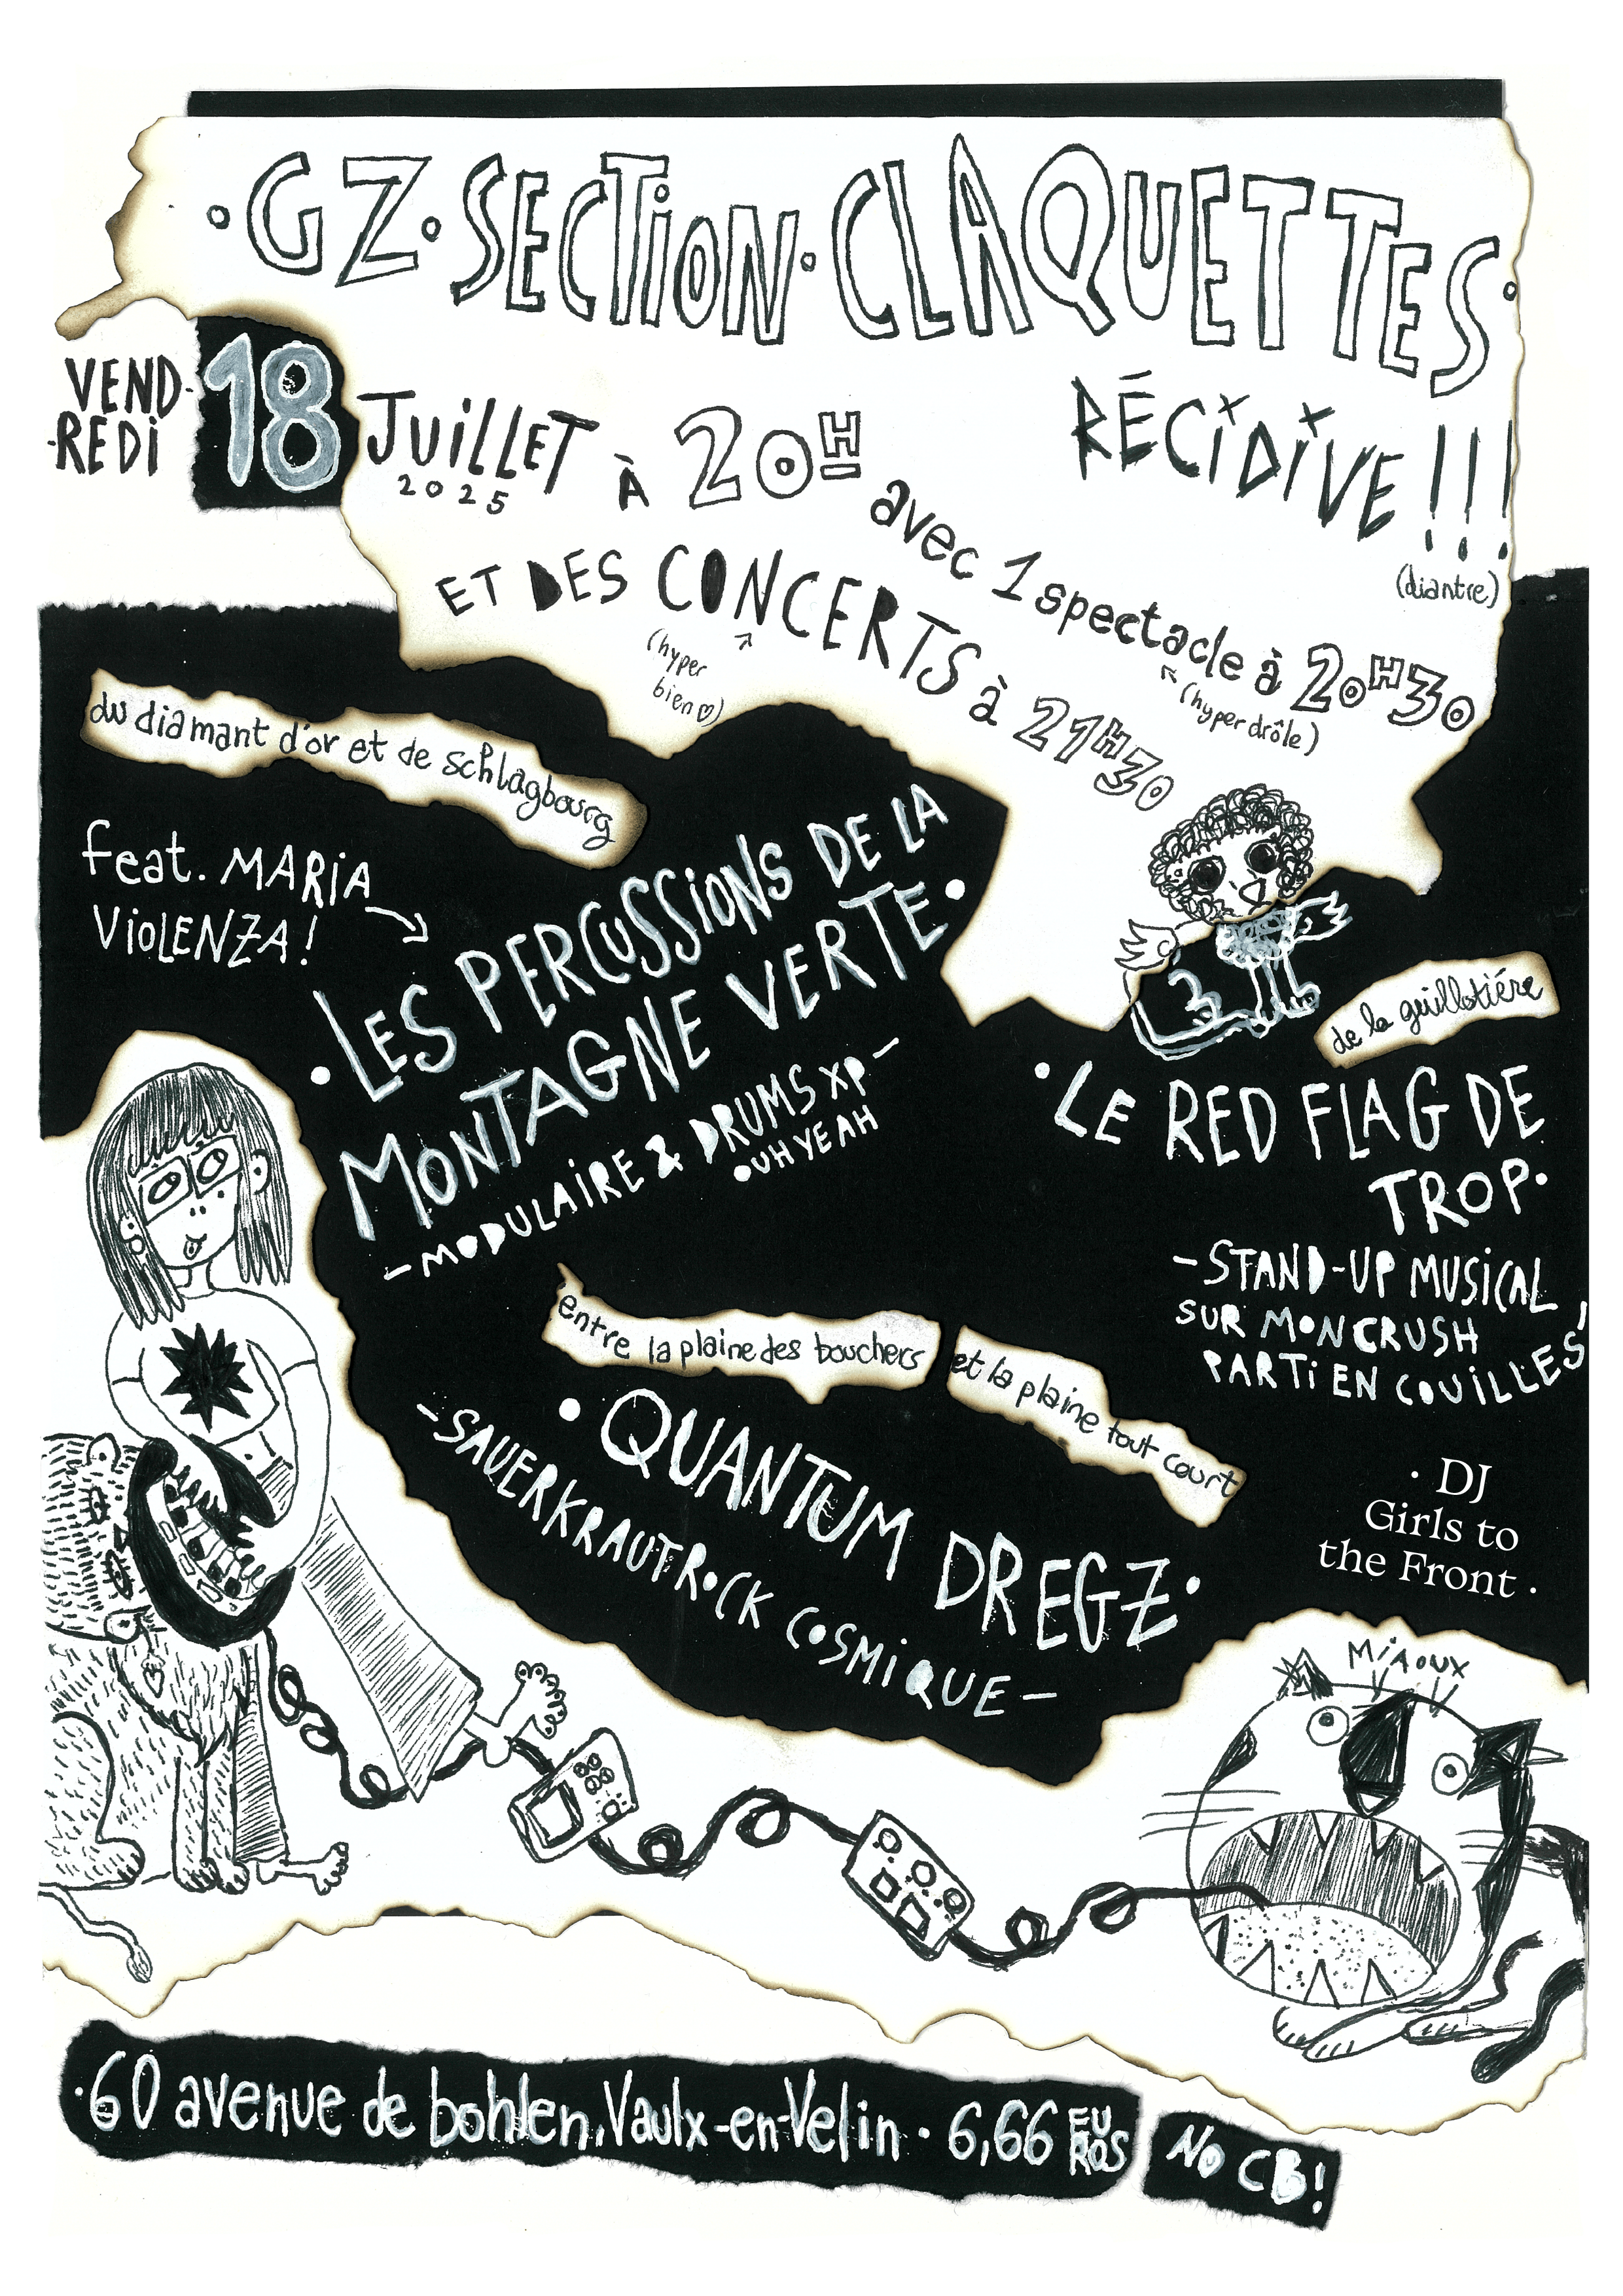 · GZ · SECTION · CLAQUETTES ·
RÉCIDIVE !!!
(diantre)
VEND-
-REDI
18
JUILLET
2025
À 20H
avec 1 spectacle à 20H30
(hyper drôle)
ET DES CONCERTS à 21H30
(hyper
bien ♡)
du diamant d'or et de schlagbourg
feat. MARIA
VIOLENZA!
· LES PERCUSSIONS DE LA
MONTAGNE VERTE ·
- MODULAIRE & DRUMS XP -
OUH YEAH
3
de la guillotière
· LE RED FLAG DE
TROP ·
- STAND-UP MUSICAL
SUR MON CRUSH
PARTI EN COUILLES -
entre la plaine des bouchers et la plaine tout court
· QUANTUM DREGZ ·
- SAUERKRAUTROCK COSMIQUE -
· DJ
Girls to
the Front ·
MIAOUX
· 60 avenue de bohlen, Vaulx-en-Velin · 6,66 EU
ROS
NO CB!